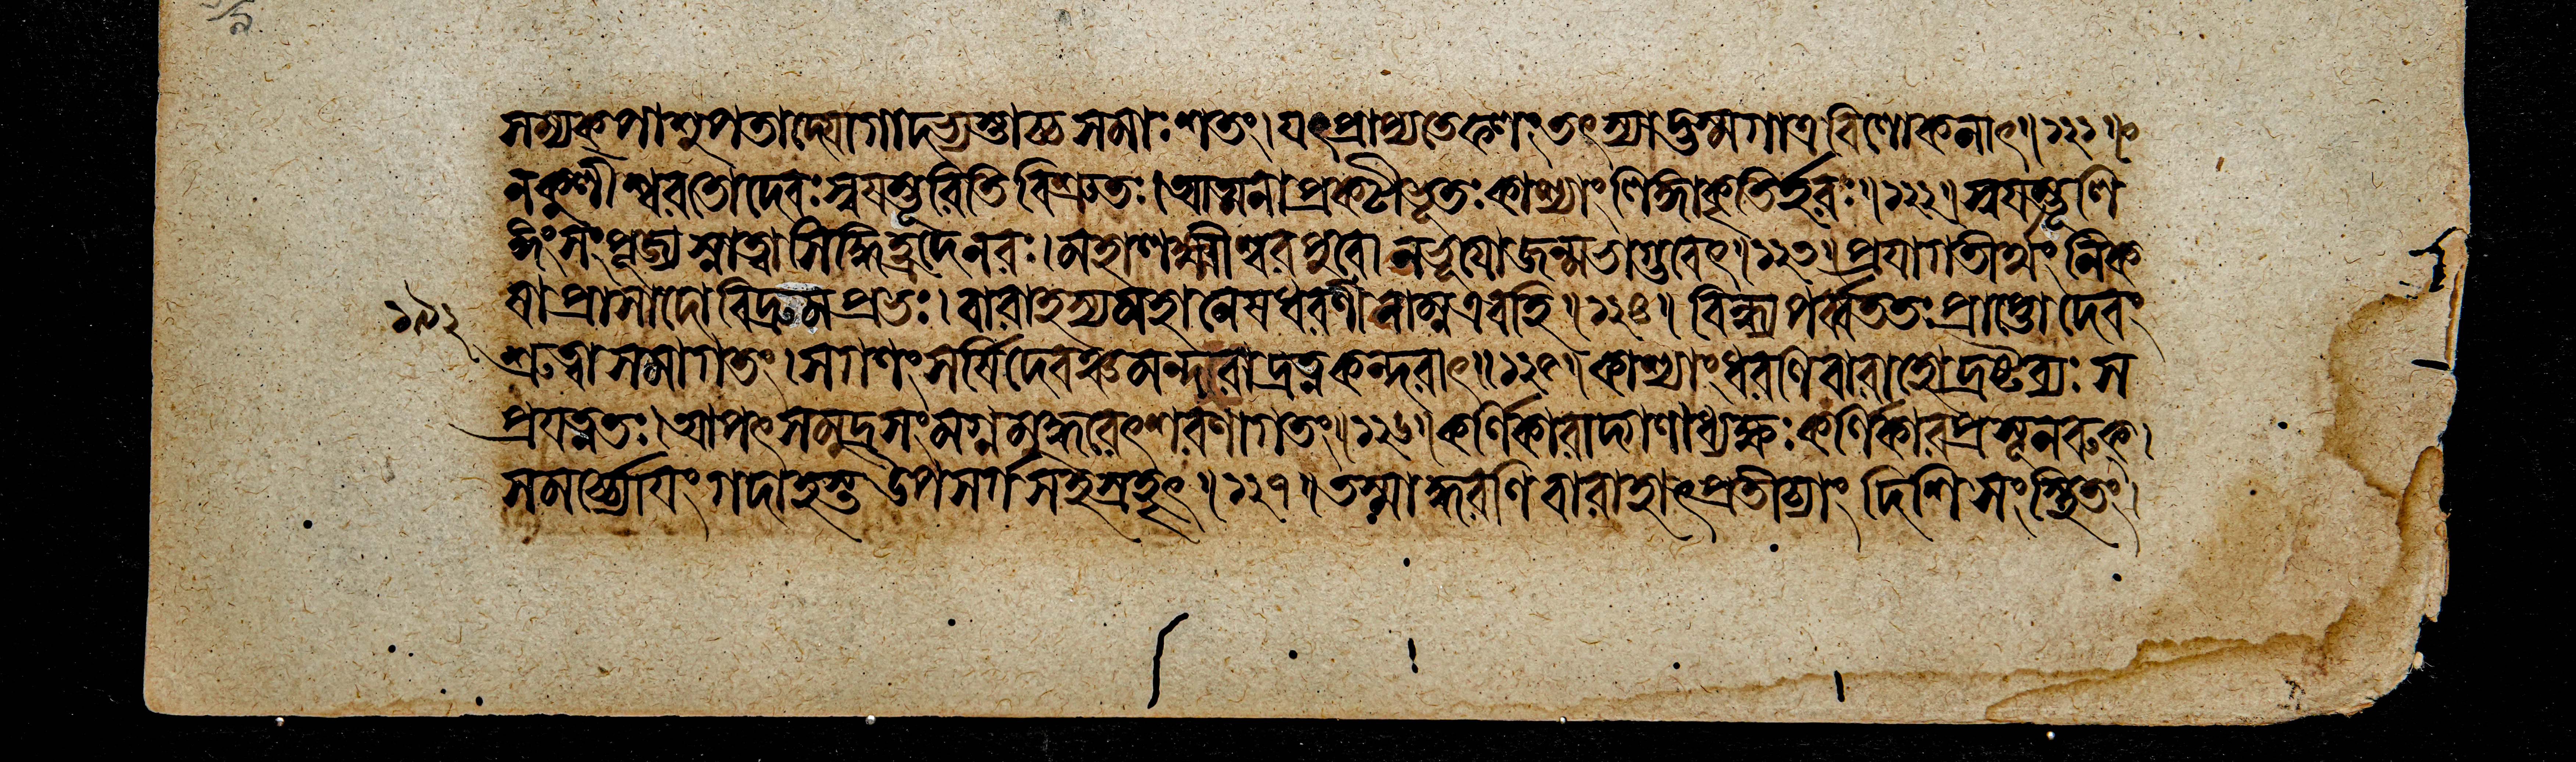 সম্যক্পাশুপতাদ্যোগাদভ্যস্তাচ্চসমাঃশতং। যৎপ্রাপ্যতেফলংতৎস্যাদ্ভস্মগাত্রবিলোকনাৎ॥১২১॥
নকুলীশ্বরতোদেবঃস্বযম্ভূরিতিবিশ্রুতঃ। আত্মনাপ্রকটীভূতঃকাশ্যাংলিঙ্গাকৃতির্হরঃ॥১২২॥স্বযম্ভূলি
ঙ্গংসংপূজ্যস্নাত্বাসিদ্ধিহ্রদেনরঃ। মহালক্ষ্মীশ্বরপুরোনভূযোজন্মভাগ্ভবেৎ॥১২৩॥প্রযাগতীর্থংনিক
১৯২
ষাপ্রাসাদোবিদ্রুমপ্রভঃ। বারাহস্যমহানেষধরণীনাম্নএবহি॥১২৪॥বিন্ধ্যপর্ব্বততঃপ্রাপ্তোদেবং
শ্রুত্বাসমাগতং। সগণংসর্ষিদেবঞ্চমন্দরাদ্রত্নকন্দরাৎ॥১২৫॥কাশ্যাংধরণিবারাহোদ্রষ্টব্যঃস
প্রযত্নতঃ। আপৎসমুদ্রসংমগ্নমুদ্ধরেৎশরণাগতং॥১২৬॥কর্ণিকারাদ্গণাধ্যক্ষঃকর্ণিকারপ্রসূনরুক্।
সমর্চ্চ্যোযংগদাহস্তউপসর্গসহস্রহৃৎ॥১২৭॥তস্মাদ্ধরণিবারাহাৎপ্রতীচ্যাংদিশিসংস্থিতং।